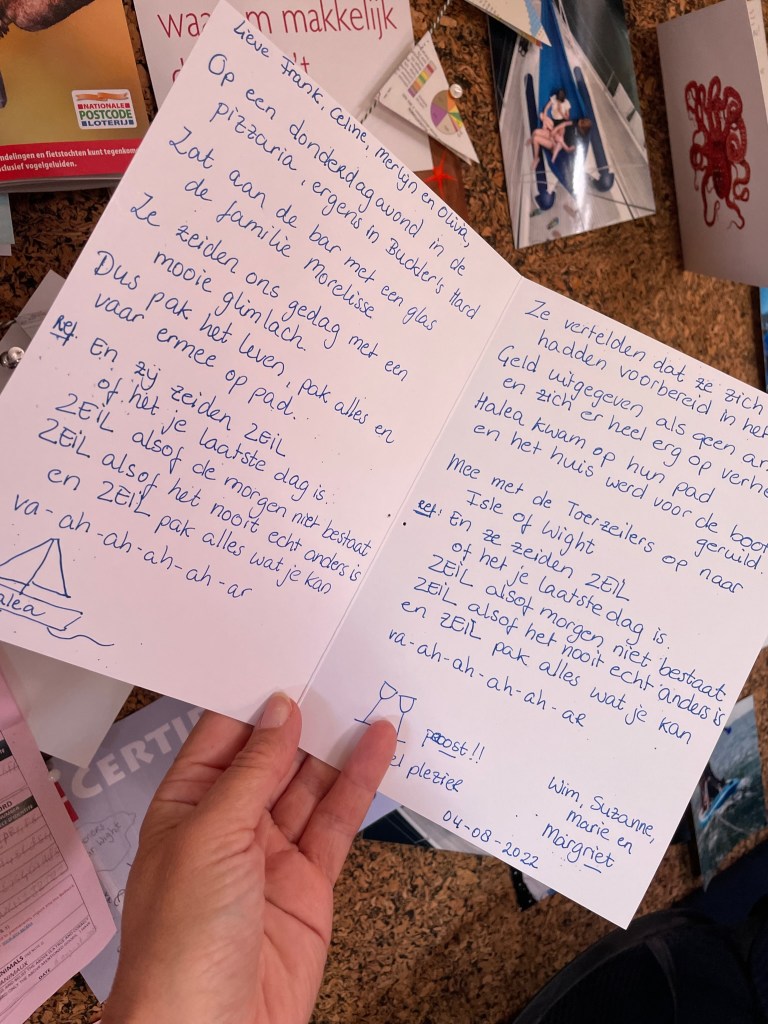 waarom makkelijk
't
NATIONALE
POSTCODE
LOTERIJ
ndelingen en fietstochten kunt tegenkom
clusief vogelgeluiden.
Lieve Frank, Celine, Merlijn en Olivia,
Op een donderdagavond in de
pizzaria, ergens in Buckler's Hard
Zat aan de bar met een glas
de familie Morelisse
Ze zeiden ons gedag met een
mooie glimlach.
Dus pak het leven, pak alles en
vaar ermee op pad.
Ref. En zij zeiden ZEIL
of het je laatste dag is.
ZEIL alsof de morgen niet bestaat
ZEIL alsof het nooit echt anders is
en ZEIL pak alles wat je kan
va-ah-ah-ah-ah-ar
alea
Ze vertelden dat ze zich
hadden voorbereid in het
Geld uitgegeven als geen an
en zich er heel erg op verhe
Halea kwam op hun pad
en het huis werd voor de boot
geruild.
Mee met de Toerzeilers op naar
Isle of Wight
Ref: En ze zeiden ZEIL
of het je laatste dag is.
ZEIL alsof morgen niet bestaat
ZEIL alsof het nooit echt anders is
en ZEIL pak alles wat je kan
va-ah-ah-ah-ah-ar
proost!!
el plezier
Wim, Suzanne,
Marie en
Margriet
04-08-2022
CERTIF
wight
NIMALS
ANIMAUX
DATE